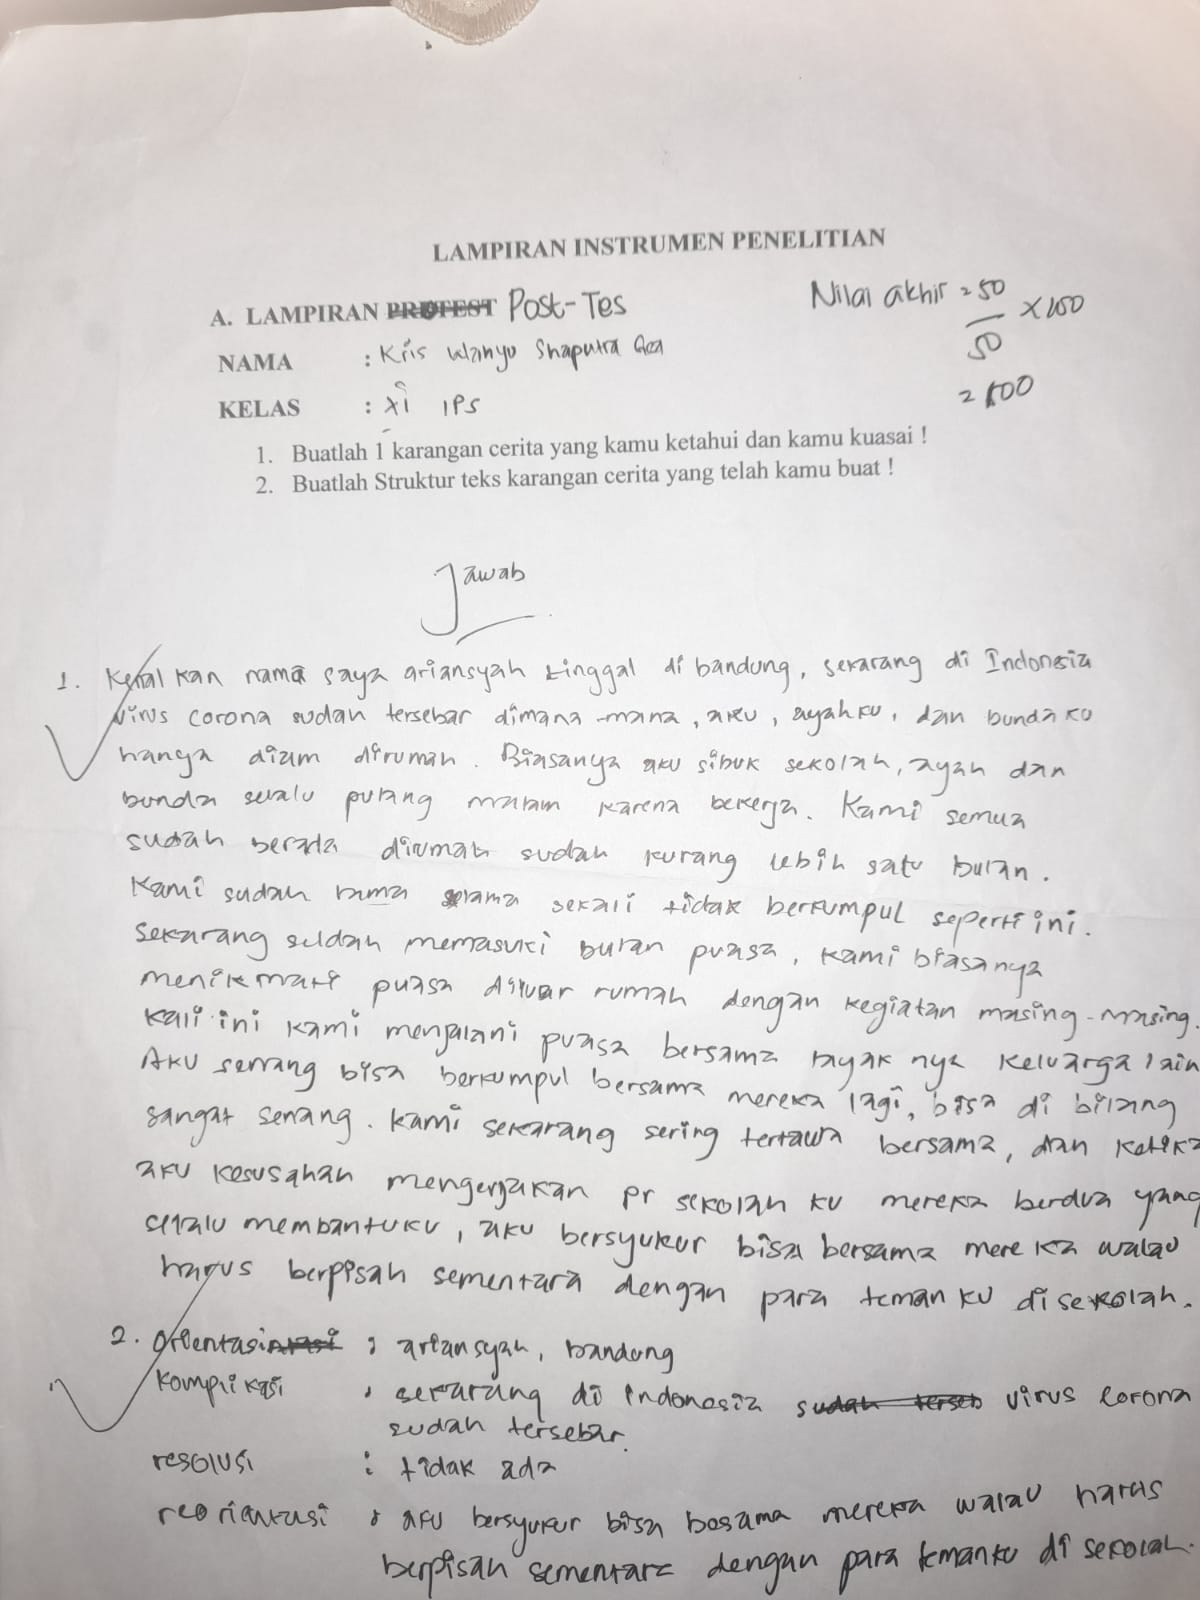 LAMPIRAN INSTRUMEN PENELITIAN
A. LAMPIRAN PROTEST Post-Tes
Nilai akhir = 50
/ 50 x 100
= 100
NAMA : Kris Wahyu Shaputra
KELAS : Xi IPS
1. Buatlah 1 karangan cerita yang kamu ketahui dan kamu kuasai !
2. Buatlah Struktur teks karangan cerita yang telah kamu buat !
Jawab
1. Kenal kan nama saya ariansyah tinggal di bandung, sekarang di Indonesia
Virus corona sudah tersebar dimana-mana, aku, ayahku, dan bundaku
hanya diam dirumah. Biasanya aku sibuk sekolah, ayah dan
bunda selalu pulang malam karena bekerja. Kami semua
sudah berada dirumah sudah kurang lebih satu bulan.
Kami sudah lama sekali tidak berkumpul seperti ini.
Sekarang suldah memasuki bulan puasa, kami biasanya
menikmati puasa diluar rumah dengan kegiatan masing-masing.
Kali ini kami menjalani puasa bersama layak nya keluarga lain
Aku senang bisa berkumpul bersama mereka lagi, bisa di bilang
sangat senang. kami sekarang sering tertawa bersama, dan ketika
aku kesusahan mengerjakan pr sekolah ku mereka berdua yang
selalu membantuku, aku bersyukur bisa bersama mereka walau
harus berpisah sementara dengan para teman ku disekolah.
2. Orientasi : ariansyah, bandung
Komplikasi : sekarang di Indonesia sudah terseb virus corona
sudah tersebar.
resolusi : tidak ada
reoriantasi : aku bersyukur bisa bosama mereka walau harus
berpisah sementara dengan para temanku di sekolah.